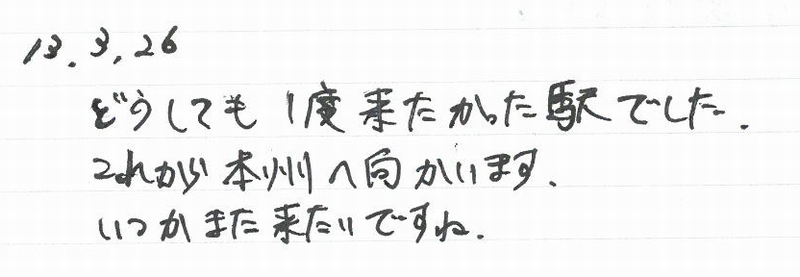 13.3.26
どうしても1度来たかった駅でした.
これから本州へ向かいます.
いつかまた来たいですね.